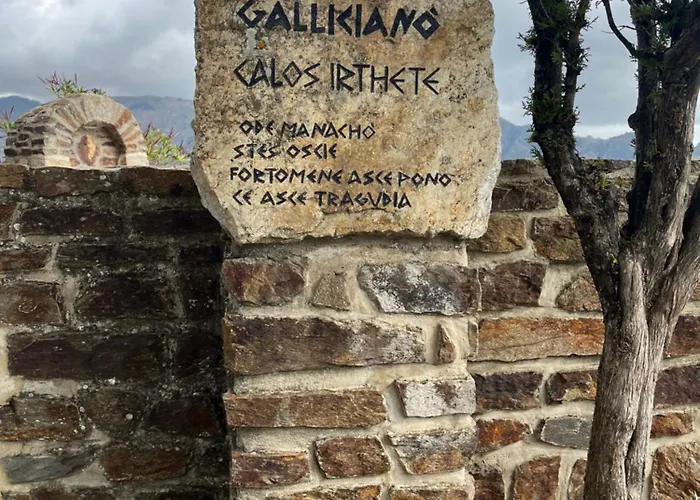 GALLICIANÒ
CALOS IRTHETE
ODE MANACHÒ
STES OSCIE
FORTOMENE ASCE PONO
CE ASCE TRAGUDIA